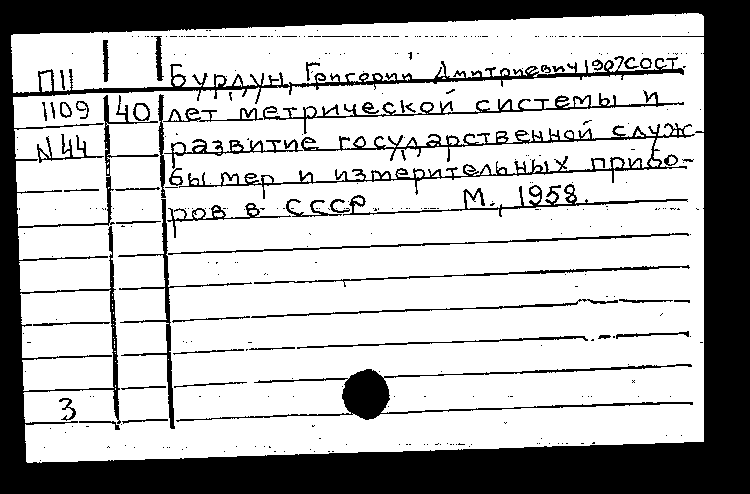 ПII Бурдун, Григорий Дмитриевич, 1907, сост.
1109 40 лет метрической системы и
N 44 развитие государственной служ-
бы мер и измерительных прибо-
ров в СССР. М., 1958.
3